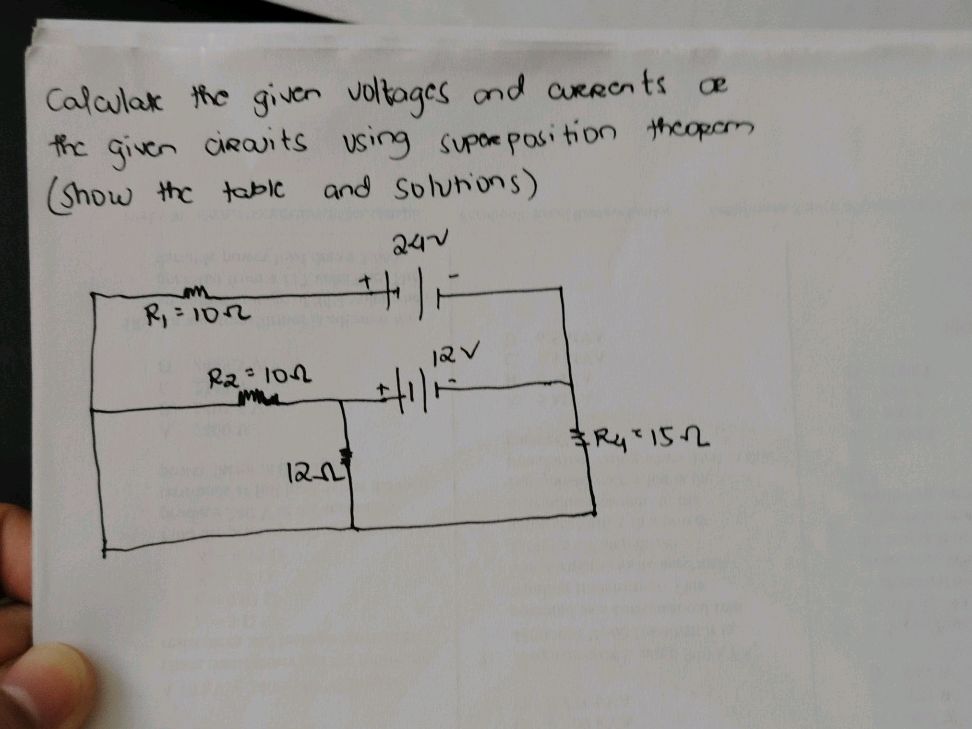 Calculate the given voltages and currents of
the given circuits using superposition theorem
(Show the table and solutions)
24V
+ -
R1 = 10Ω
12V
R2 = 10Ω
+ -
R4 = 15Ω
12Ω